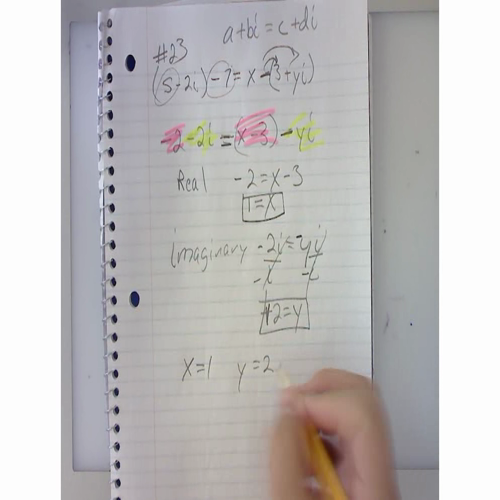 a+bi = c+di
#23
(5-2i)-7 = x-(3+yi)
-2-2i = (x-3)-yi
Real -2 = x-3
1=x
imaginary -2i = -yi
-i -i
+2=y
x=1 y=2